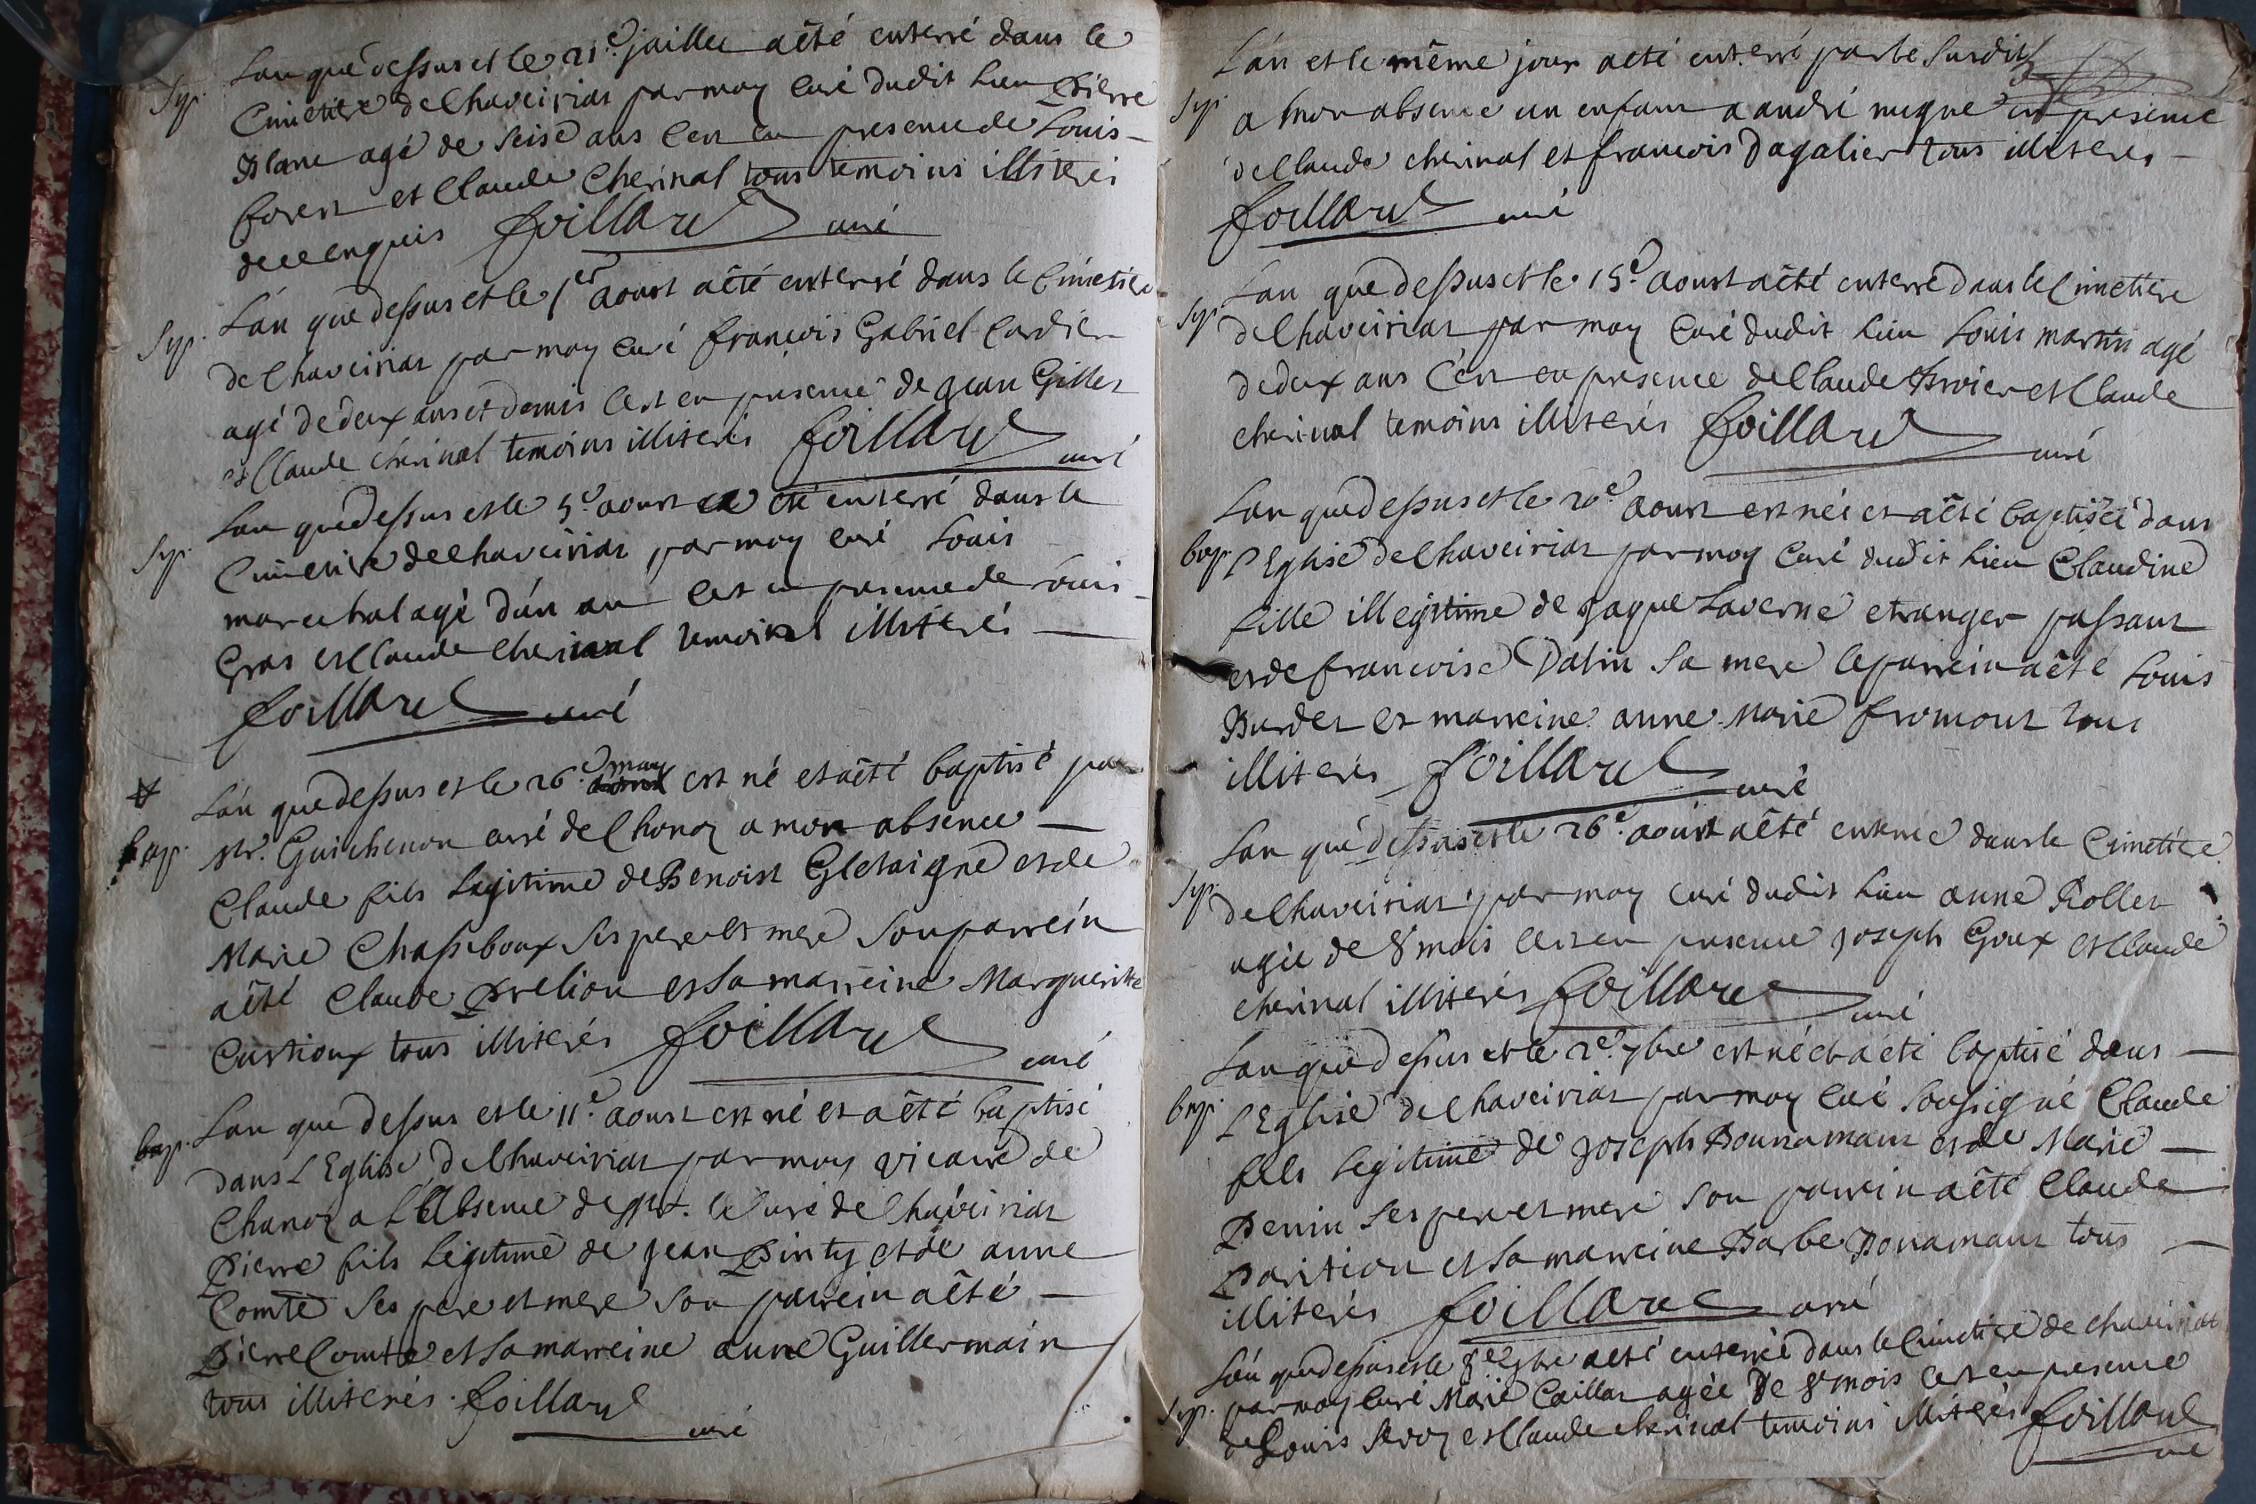 L'an que dessus et le 21e juillet a êté enterré dans le
Sep. Cimetiere de Chaveiriat par moy curé dudit lieu Pierre
Blanc agé de seise ans c'est en presence de Louis
forest et Claude Cherinal tous temoins illiterés
de ce enquis foillard curé
L'an que dessus et le 1er aoust a êté enterré dans le Cimetiere
Sep. de Chaveiriat par moy curé françois Gabriel Cordier
agé de deux ans et demis c'est en presence de jean Gillet
et Claude cherinal temoins illiterés foillard curé
L'an que dessus et le 5e aoust a eté enterré dans le
Sep. Cimetiere de Chaveiriat par moy curé Louis
marechal agé d'un an c'est en presence de Louis
Gras et Claude Cherinal temoins illiterés
foillard curé
L'an que dessus et le 26e may est né et a êté baptisé par
bap. Mr. Guichenon curé de Chanoz a mon absence
Claude fils legitime de Benoist Gletaigne et de
Marie Chasseboux ses pere et mere son parrein
a êté Claude Prelion et sa marreine Margueritte
Curtioux tous illiterés foillard curé
L'an que dessus et le 11e aoust est né et a êté baptisé
bap. dans L'Eglise de Chaveiriat par moy vicaire de
Chanoz a L'Absence de Mr. le Curé de Chaveiriat
Pierre fils legitime de jean Pinty et de anne
Comte ses pere et mere son parrein a êté
Pierre Comte et sa marreine anne Guillermain
tous illiterés foillard
curé
L'an et le même jour a eté enterré par le susdit
Sep. a mon absence un enfant a andré nugue en presence
de Claude cherinal et francois Dagalier tous illiterés
foillard curé
L'an que dessus et le 15e aoust a êté enterré dans le Cimetiere
Sep. de Chaveiriat par moy curé dudit lieu Louis martin agé
de deux ans c'est en presence de Claude et Claude
cherinal temoins illiterés foillard curé
L'an que dessus et le 20e aoust est née et a êté baptisée dans
bap. L'Eglise de Chaveiriat par moy curé dudit lieu Claudine
fille illegitime de jaque Laverne etranger passant
et de francoise Datin sa mere le parrein a êté Louis
Burdet et marreine anne Marie fromont tous
illiterés foillard curé
L'an que dessus et le 26e aoust a êté enterrée dans le Cimetiere
Sep. de Chaveiriat par moy curé dudit lieu anne Rollet
agée de 8 mois c'est en presence joseph Goux et Claude
cherinal illiterés foillard curé
L'an que dessus et le 2e 7bre est né et a eté baptisé dans
bap. L'Eglise de Chaveiriat par moy curé soussigné Claude
fils legitime de joseph Bounamant et de Marie
Penin ses pere et mere son parrein a êté Claude
Parition et sa marreine Barbe Bonamant tous
illiterés foillard curé
L'an que dessus et le 8e 7bre a eté enterrée dans le Cimetiere de chaveiriat
Sep. par moy curé Marie Caillat agée de 8 mois c'est en presence
de Louis et Claude cherinal temoins illiterés foillard
curé